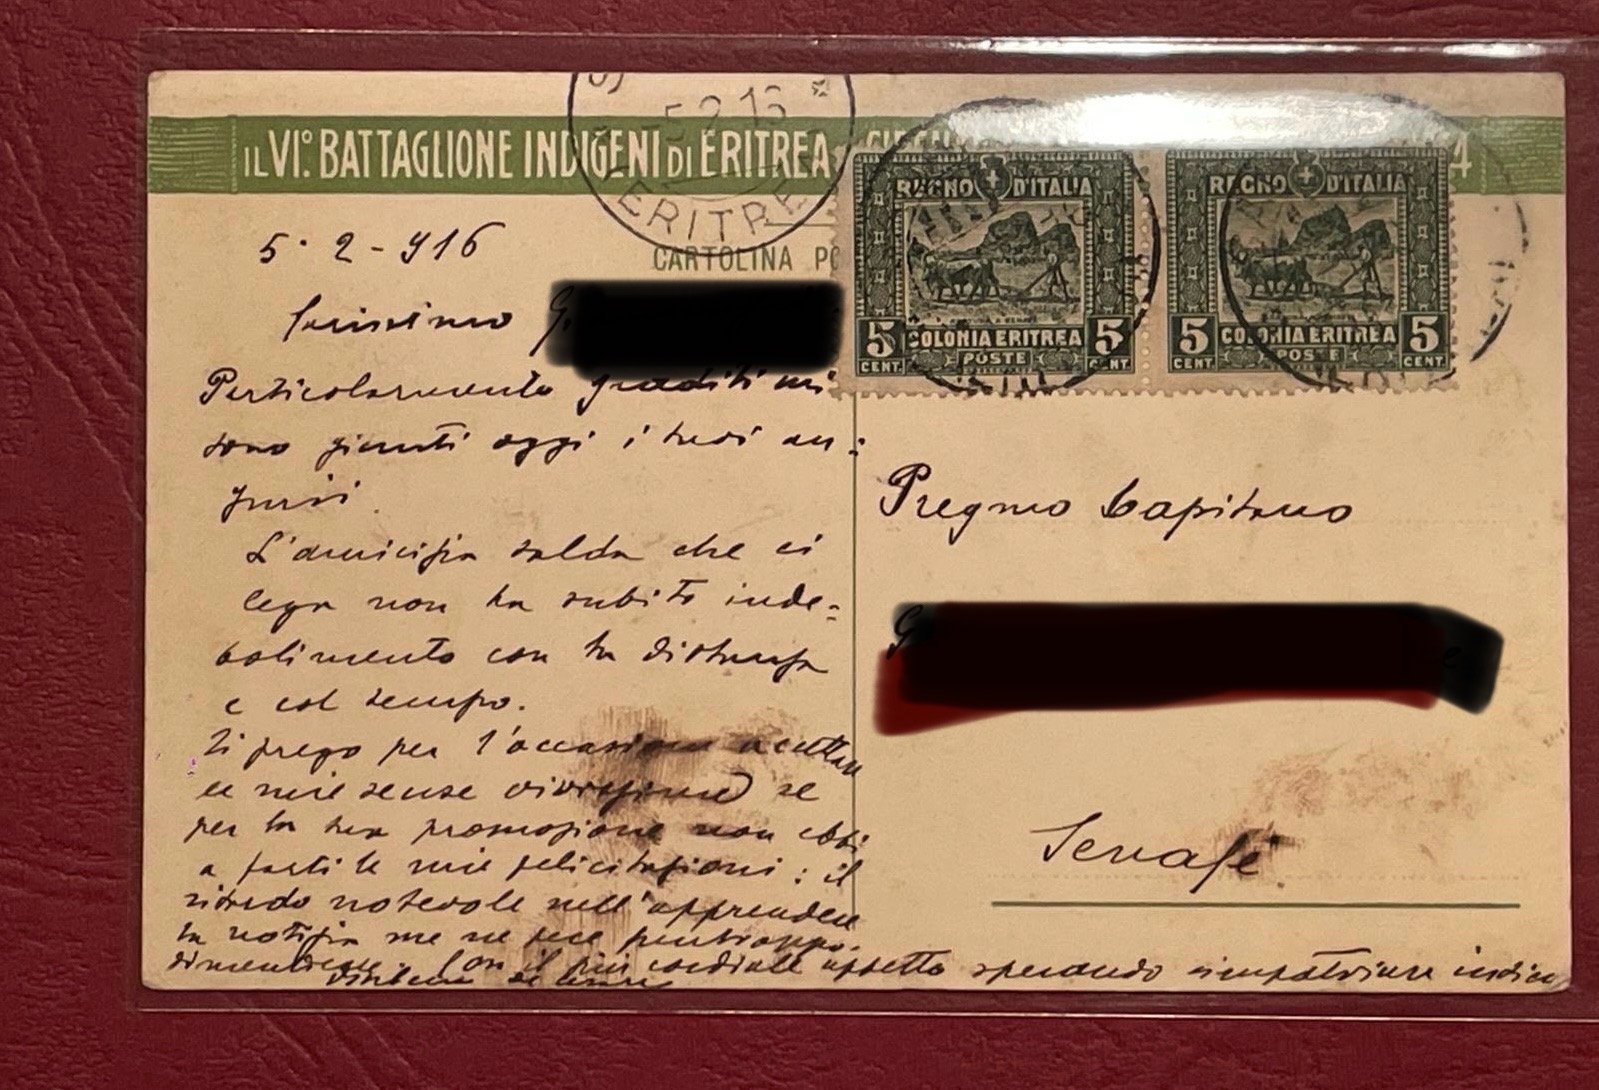 IL VI.° BATTAGLIONE INDIGENI DI ERITREA
4
5.2.16
ERITREA
CARTOLINA PO
REGNO D'ITALIA
5 COLONIA ERITREA 5
CENT. POSTE CENT.
REGNO D'ITALIA
5 COLONIA ERITREA 5
CENT. POSTE CENT.
5-2-916
Carissimo G.
Particolarmente graditi mi
sono giunti oggi i tuoi au=
guri.
L'amicizia salda che ci
lega non ha subito inde=
bolimento con la distanza
e col tempo.
Ti prego per l'occasione accettare
le mie scuse vivissime se
per la tua promozione non ebbi
a farti le mie felicitazioni: il
ritardo notevole nell'apprendere
la notizia me ne fece
Con il più cordiale affetto sperando rimpatriare
Pregmo Capitano
G
e
Senafé